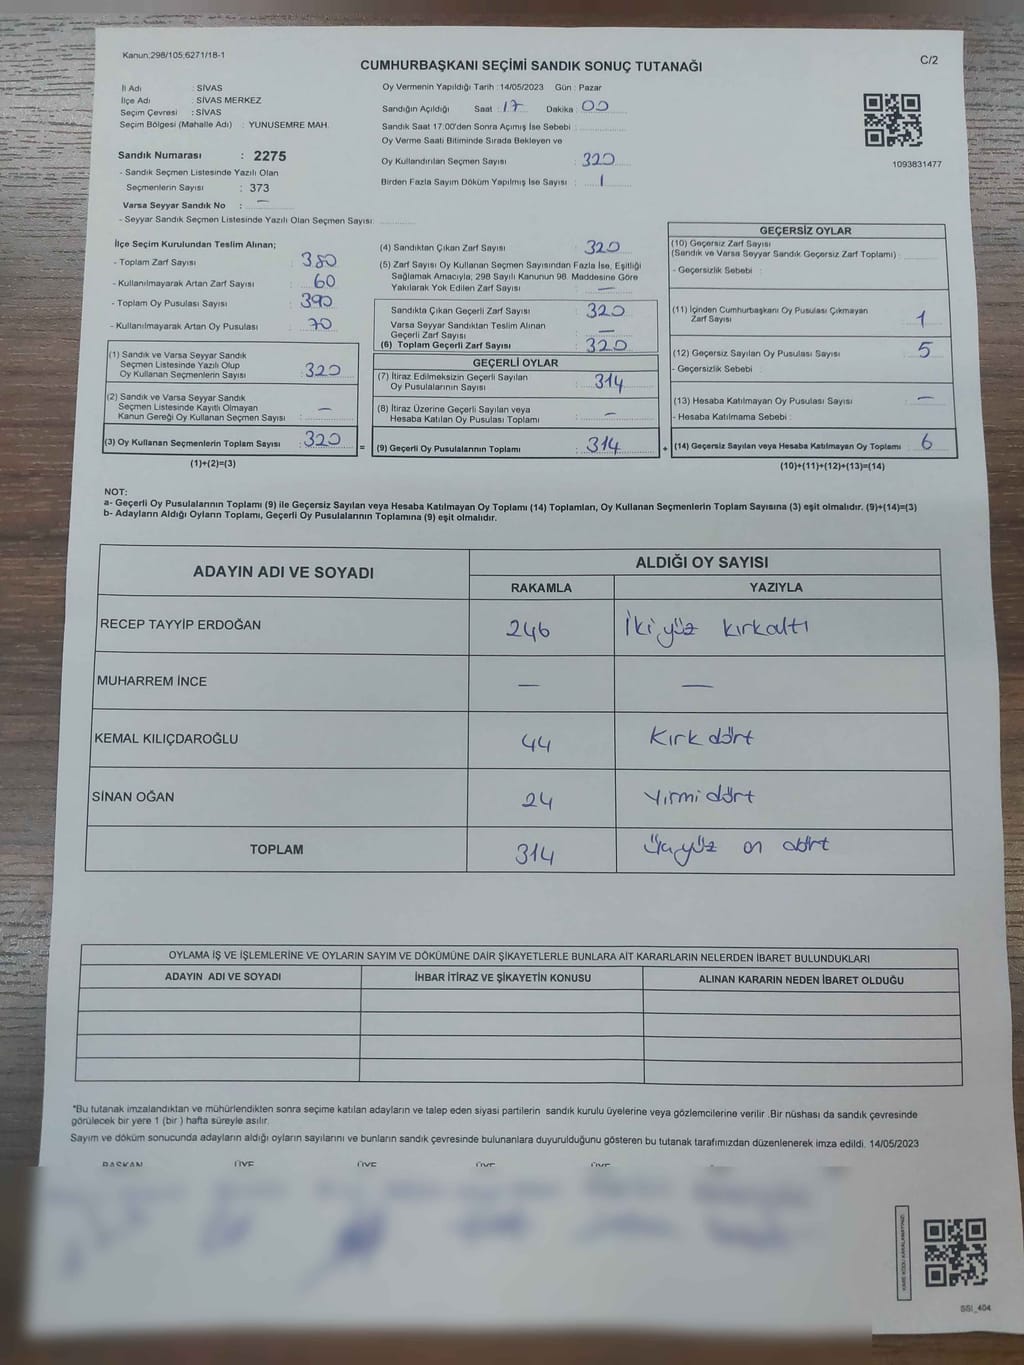 Kanun:298/105;6271/18-1
C/2
CUMHURBAŞKANI SEÇİMİ SANDIK SONUÇ TUTANAĞI
İl Adı : SİVAS
İlçe Adı : SİVAS MERKEZ
Seçim Çevresi : SİVAS
Seçim Bölgesi (Mahalle Adı) : YUNUSEMRE MAH.
Sandık Numarası : 2275
- Sandık Seçmen Listesinde Yazılı Olan
Seçmenlerin Sayısı : 373
Varsa Seyyar Sandık No : —
- Seyyar Sandık Seçmen Listesinde Yazılı Olan Seçmen Sayısı:
Oy Vermenin Yapıldığı Tarih : 14/05/2023 Gün : Pazar
Sandığın Açıldığı Saat : 17 Dakika : 00
Sandık Saat 17:00'den Sonra Açımış İse Sebebi :
Oy Verme Saati Bitiminde Sırada Bekleyen ve
Oy Kullandırılan Seçmen Sayısı : 320
Birden Fazla Sayım Döküm Yapılmış İse Sayısı : 1
1093831477
İlçe Seçim Kurulundan Teslim Alınan;
- Toplam Zarf Sayısı : 380
- Kullanılmayarak Artan Zarf Sayısı : 60
- Toplam Oy Pusulası Sayısı : 390
- Kullanılmayarak Artan Oy Pusulası : 70
(1) Sandık ve Varsa Seyyar Sandık
Seçmen Listesinde Yazılı Olup
Oy Kullanan Seçmenlerin Sayısı : 320
(2) Sandık ve Varsa Seyyar Sandık
Seçmen Listesinde Kayıtlı Olmayan
Kanun Gereği Oy Kullanan Seçmen Sayısı : —
(3) Oy Kullanan Seçmenlerin Toplam Sayısı : 320
(1)+(2)=(3)
(4) Sandıktan Çıkan Zarf Sayısı : 320
(5) Zarf Sayısı Oy Kullanan Seçmen Sayısından Fazla İse, Eşitliği
Sağlamak Amacıyla, 298 Sayılı Kanunun 98. Maddesine Göre
Yakılarak Yok Edilen Zarf Sayısı : —
Sandıkta Çıkan Geçerli Zarf Sayısı : 320
Varsa Seyyar Sandıktan Teslim Alınan
Geçerli Zarf Sayısı : —
(6) Toplam Geçerli Zarf Sayısı : 320
GEÇERLİ OYLAR
(7) İtiraz Edilmeksizin Geçerli Sayılan
Oy Pusulalarının Sayısı : 314
(8) İtiraz Üzerine Geçerli Sayılan veya
Hesaba Katılan Oy Pusulası Toplamı : —
= (9) Geçerli Oy Pusulalarının Toplamı : 314
GEÇERSİZ OYLAR
(10) Geçersiz Zarf Sayısı
(Sandık ve Varsa Seyyar Sandık Geçersiz Zarf Toplamı) :
- Geçersizlik Sebebi :
(11) İçinden Cumhurbaşkanı Oy Pusulası Çıkmayan
Zarf Sayısı : 1
(12) Geçersiz Sayılan Oy Pusulası Sayısı : 5
- Geçersizlik Sebebi :
(13) Hesaba Katılmayan Oy Pusulası Sayısı : —
- Hesaba Katılmama Sebebi :
+ (14) Geçersiz Sayılan veya Hesaba Katılmayan Oy Toplamı : 6
(10)+(11)+(12)+(13)=(14)
NOT:
a- Geçerli Oy Pusulalarının Toplamı (9) ile Geçersiz Sayılan veya Hesaba Katılmayan Oy Toplamı (14) Toplamları, Oy Kullanan Seçmenlerin Toplam Sayısına (3) eşit olmalıdır. (9)+(14)=(3)
b- Adayların Aldığı Oyların Toplamı, Geçerli Oy Pusulalarının Toplamına (9) eşit olmalıdır.
ADAYIN ADI VE SOYADI
ALDIĞI OY SAYISI
RAKAMLA YAZIYLA
RECEP TAYYİP ERDOĞAN 246 İkiyüz kırkaltı
MUHARREM İNCE — —
KEMAL KILIÇDAROĞLU 44 Kırk dört
SİNAN OĞAN 24 Yirmi dört
TOPLAM 314 Üçyüz on dört
OYLAMA İŞ VE İŞLEMLERİNE VE OYLARIN SAYIM VE DÖKÜMÜNE DAİR ŞİKAYETLERLE BUNLARA AİT KARARLARIN NELERDEN İBARET BULUNDUKLARI
ADAYIN ADI VE SOYADI İHBAR İTİRAZ VE ŞİKAYETİN KONUSU ALINAN KARARIN NEDEN İBARET OLDUĞU
*Bu tutanak imzalandıktan ve mühürlendikten sonra seçime katılan adayların ve talep eden siyasi partilerin sandık kurulu üyelerine veya gözlemcilerine verilir .Bir nüshası da sandık çevresinde
görülecek bir yere 1 (bir ) hafta süreyle asılır.
Sayım ve döküm sonucunda adayların aldığı oyların sayılarını ve bunların sandık çevresinde bulunanlara duyurulduğunu gösteren bu tutanak tarafımızdan düzenlenerek imza edildi. 14/05/2023
BAŞKAN ÜYE ÜYE ÜYE ÜYE
KARE KODU KARALAMAYINIZ!
SSI_404